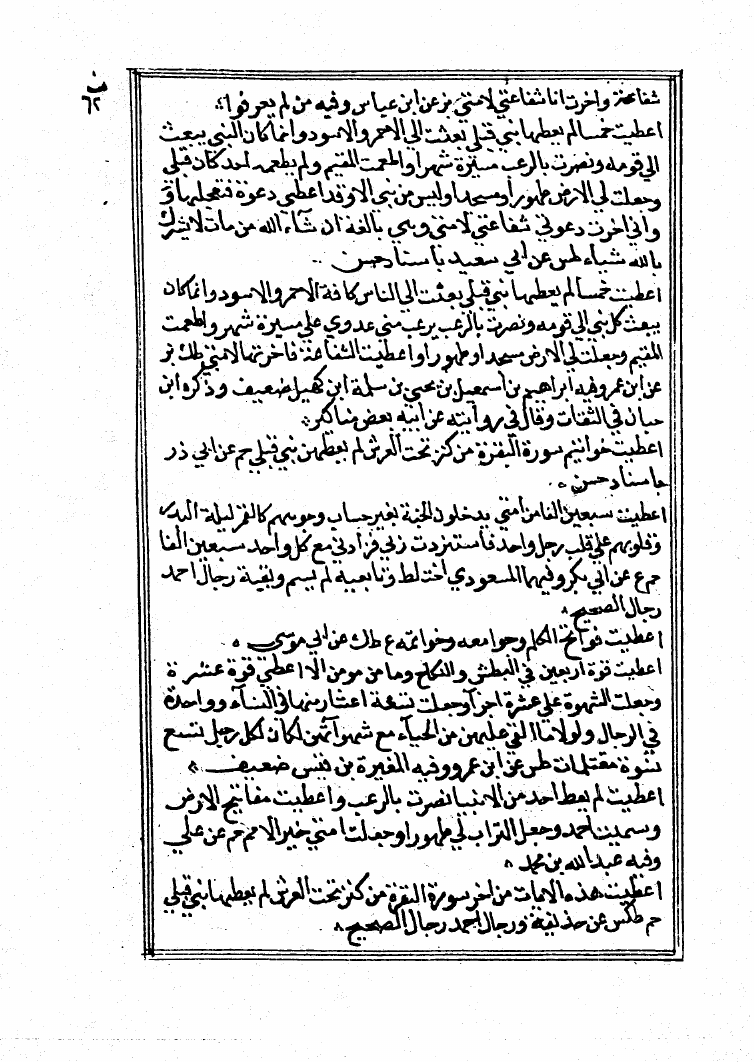 ن
٦٢
شفاعة واخرت انا شفاعتي لامتي بز عن ابن عباس وفيه من لم يعرفوا
اعطيت خمسا لم يعطها نبي قبلي بعثت الي الاحمر والاسود وانما كان النبي يبعث
الي قومه ونصرت بالرعب مسيرة شهر واطعمت الغنيم ولم يطعمه احد كان قبلي
وجعلت لي الارض طهورا ومسجدا وليس من نبي الا وقد اعطي دعوة فتعجلها
واني اخرت دعوتي شفاعتي لامتي وهي بالغة ان شاء الله من مات لا يشرك
بالله شياء طس عن ابي سعيد باسناد حسن
اعطيت خمسا لم يعطها نبي قبلي بعثت الي الناس كافة الاحمر والاسود وانما كان
يبعث كل نبي الي قومه ونصرت بالرعب يرعب مني عدوي علي مسيرة شهر واطعمت
المغنم وجعلت لي الارض مسجدا وطهورا واعطيت الشفاعة فاخرتها لامتي طك بز
عن ابن عمر وفيه ابراهيم بن اسمعيل بن يحيي بن سلمة ابن كهيل ضعيف وذكره ابن
حبان في الثقات وقال في روايته عن ابيه بعض مناكير
اعطيت خواتيم سورة البقرة من كنز تحت العرش لم يعطهن نبي قبلي حم عن ابي ذر
باسناد حسن
اعطيت سبعين الفا من امتي يدخلون الجنة بغير حساب وجوههم كالقمر ليلة البدر
وقلوبهم علي قلب رجل واحد فاستزدت ربي فزادني مع كل واحد سبعين الفا
حم ع عن ابي بكر وفيهما المسعودي اختلط وتابعيه لم يسم وبقية رجال احمد
رجال الصحيح
اعطيت فواتح الكلم وجوامعه وخواتمه ع طك عن ابي موسي
اعطيت قوة اربعين في البطش والنكاح وما من مومن الا اعطي قوة عشرة
وجعلت الشهوة علي عشرة اجزاء وجعلت تسعة اعشار منها في النساء وواحدة
في الرجال ولولا ما القي عليهن من الحياء مع شهواتهن لكان لكل رجل تسع
نسوة مغتلمات طس عن ابن عمرو وفيه المغيرة بن قيس ضعيف
اعطيت لم يعط احد من الانبيا نصرت بالرعب واعطيت مفاتيح الارض
وسميت احمد وجعل التراب لي طهورا وجعلت امتي خير الامم حم عن علي
وفيه عبد الله بن محمد
اعطيت هذه الايات من اخر سورة البقرة من كنز تحت العرش لم يعطها نبي قبلي
حم طكس عن حذيفة ورجال احمد رجال الصحيح